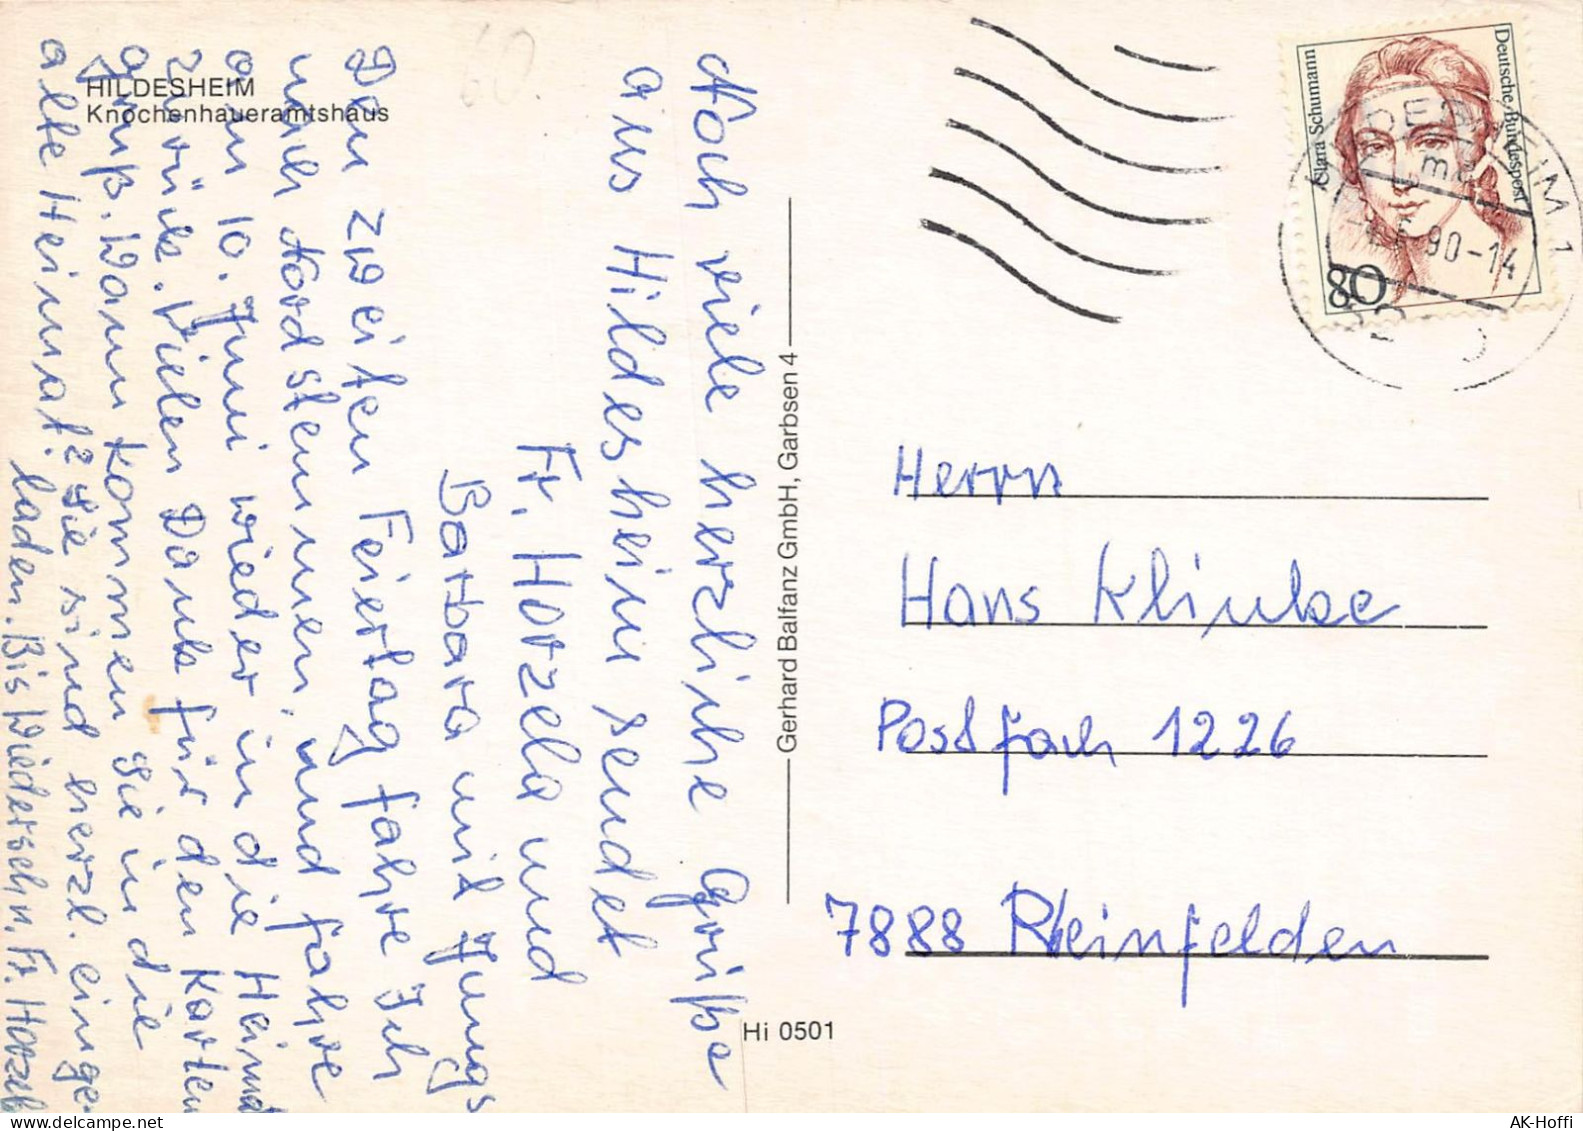 HILDESHEIM
Knochenhaueramtshaus
60
Noch viele herzliche Grüße
aus Hildesheim sendet
Fr. Horzela und
Barbara mit Jungs
Den zweiten Feiertag fahre Ich
nach Nordstemmen, und fahre
am 10. Juni wieder in die Heimat
zurück. Vielen Dank für den Karten
gruß. Wann kommen Sie in die
alte Heimat? Sie sind herzl. einge-
laden. Bis Wiedersehn, Fr. Horzela
Gerhard Balfanz GmbH, Garbsen 4
Hi 0501
Clara Schumann
Deutsche Bundespost
80
90-14
Herrn
Hans Klinke
Postfach 1226
7888 Rheinfelden
AK-Hoffi